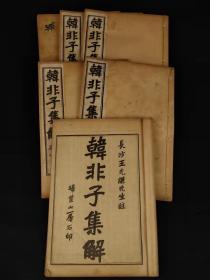 韓非子集解
韓非子集解
韓非子集解
韓非子集解
長沙王先謙先生註
韓非子集解
埽葉山房石印